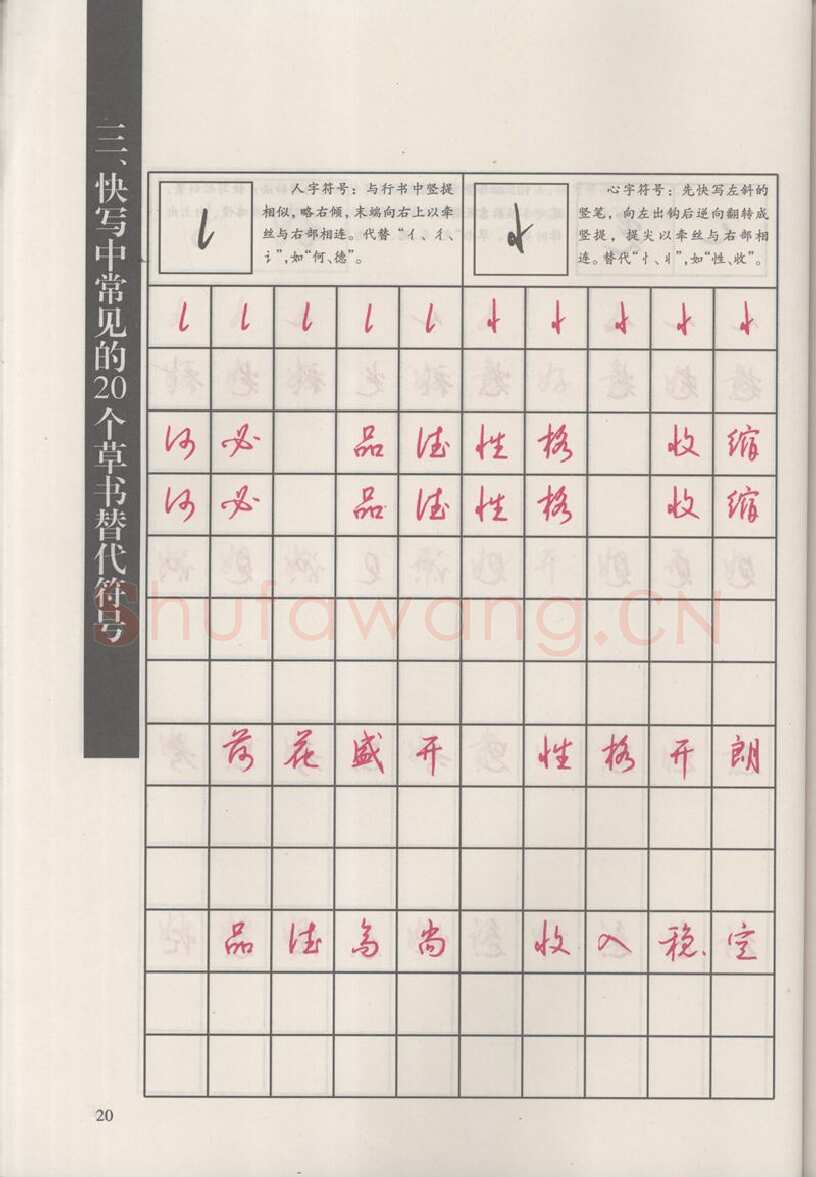 三、快写中常见的20个草书替代符号
人字符号：与行书中竖提
相似，略右倾，末端向右上以牵
丝与右部相连。代替“亻、彳、
讠”，如“何、德”。
心字符号：先快写左斜的
竖笔，向左出钩后逆向翻转成
竖提，提尖以牵丝与右部相
连。替代“忄、丬”，如“性、收”。
何必 品德性格 收缩
何必 品德性格 收缩
荷花盛开 性格开朗
品德高尚 收入稳定
Shufawang.CN
20